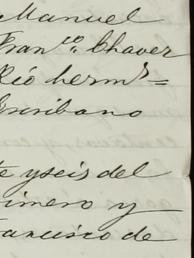 Manuel
Franco. Chaver
Rio hermr =
Escribano
te y seis del
rimero y
rancisco de